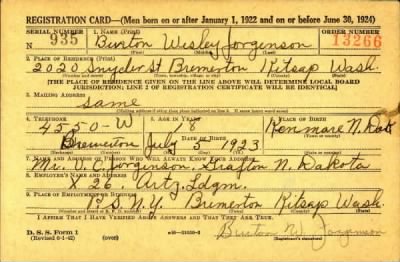 REGISTRATION CARD—(Men born on or after January 1, 1922 and on or before June 30, 1924)
SERIAL NUMBER 1. NAME (Print) ORDER NUMBER
N 935 Burton Wesley Jorgenson 13266
2. PLACE OF RESIDENCE (Print)
2020 Snyder St Bremerton Kitsap Wash.
[THE PLACE OF RESIDENCE GIVEN ON THE LINE ABOVE WILL DETERMINE LOCAL BOARD
JURISDICTION; LINE 2 OF REGISTRATION CERTIFICATE WILL BE IDENTICAL]
3. MAILING ADDRESS
same
[Mailing address if other than place indicated on line 2. If same insert word same]
4. TELEPHONE 5. AGE IN YEARS 6. PLACE OF BIRTH
4550-W 18 Kenmare N. Dak
DATE OF BIRTH
Bremerton July 5 1923
7. NAME AND ADDRESS OF PERSON WHO WILL ALWAYS KNOW YOUR ADDRESS
Mr. V. C. Jorgenson, Grafton N. Dakota
8. EMPLOYER'S NAME AND ADDRESS
X 26
9. PLACE OF EMPLOYMENT OR BUSINESS
P. S. N. Y. Bremerton Kitsap Wash.
I AFFIRM THAT I HAVE VERIFIED ABOVE ANSWERS AND THAT THEY ARE TRUE.
D. S. S. Form 1
(Revised 6-1-42) (over)
Burton W. Jorgenson
(Registrant's signature)